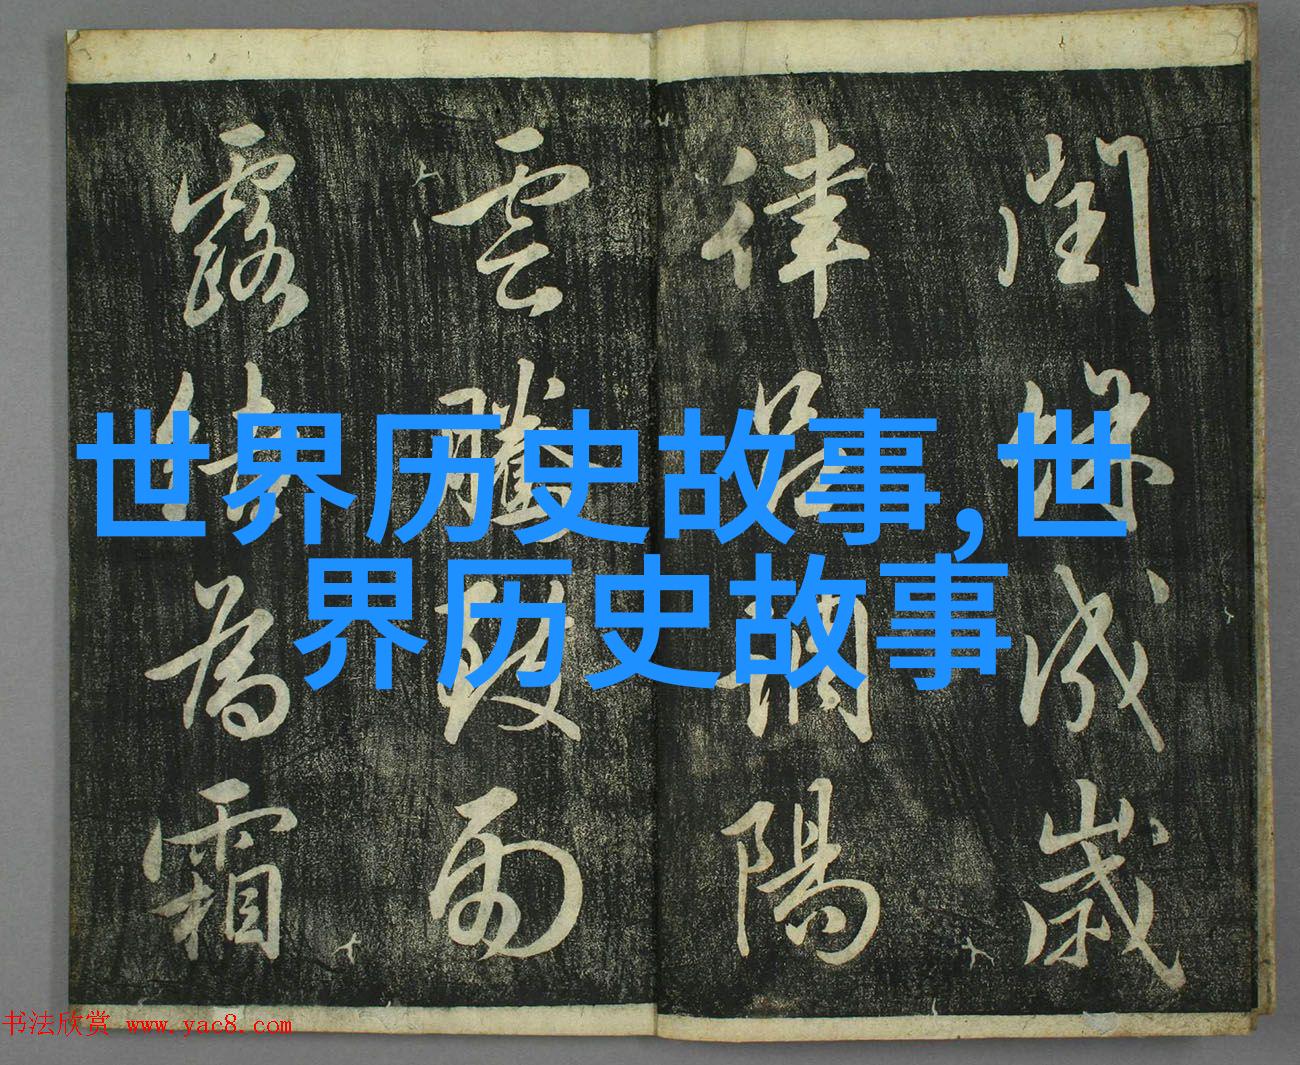 閏餘成歲
律呂調陽
雲騰致雨
露結為霜
世界历史故事,世
界历史故事
书法欣赏 www.yac8.com